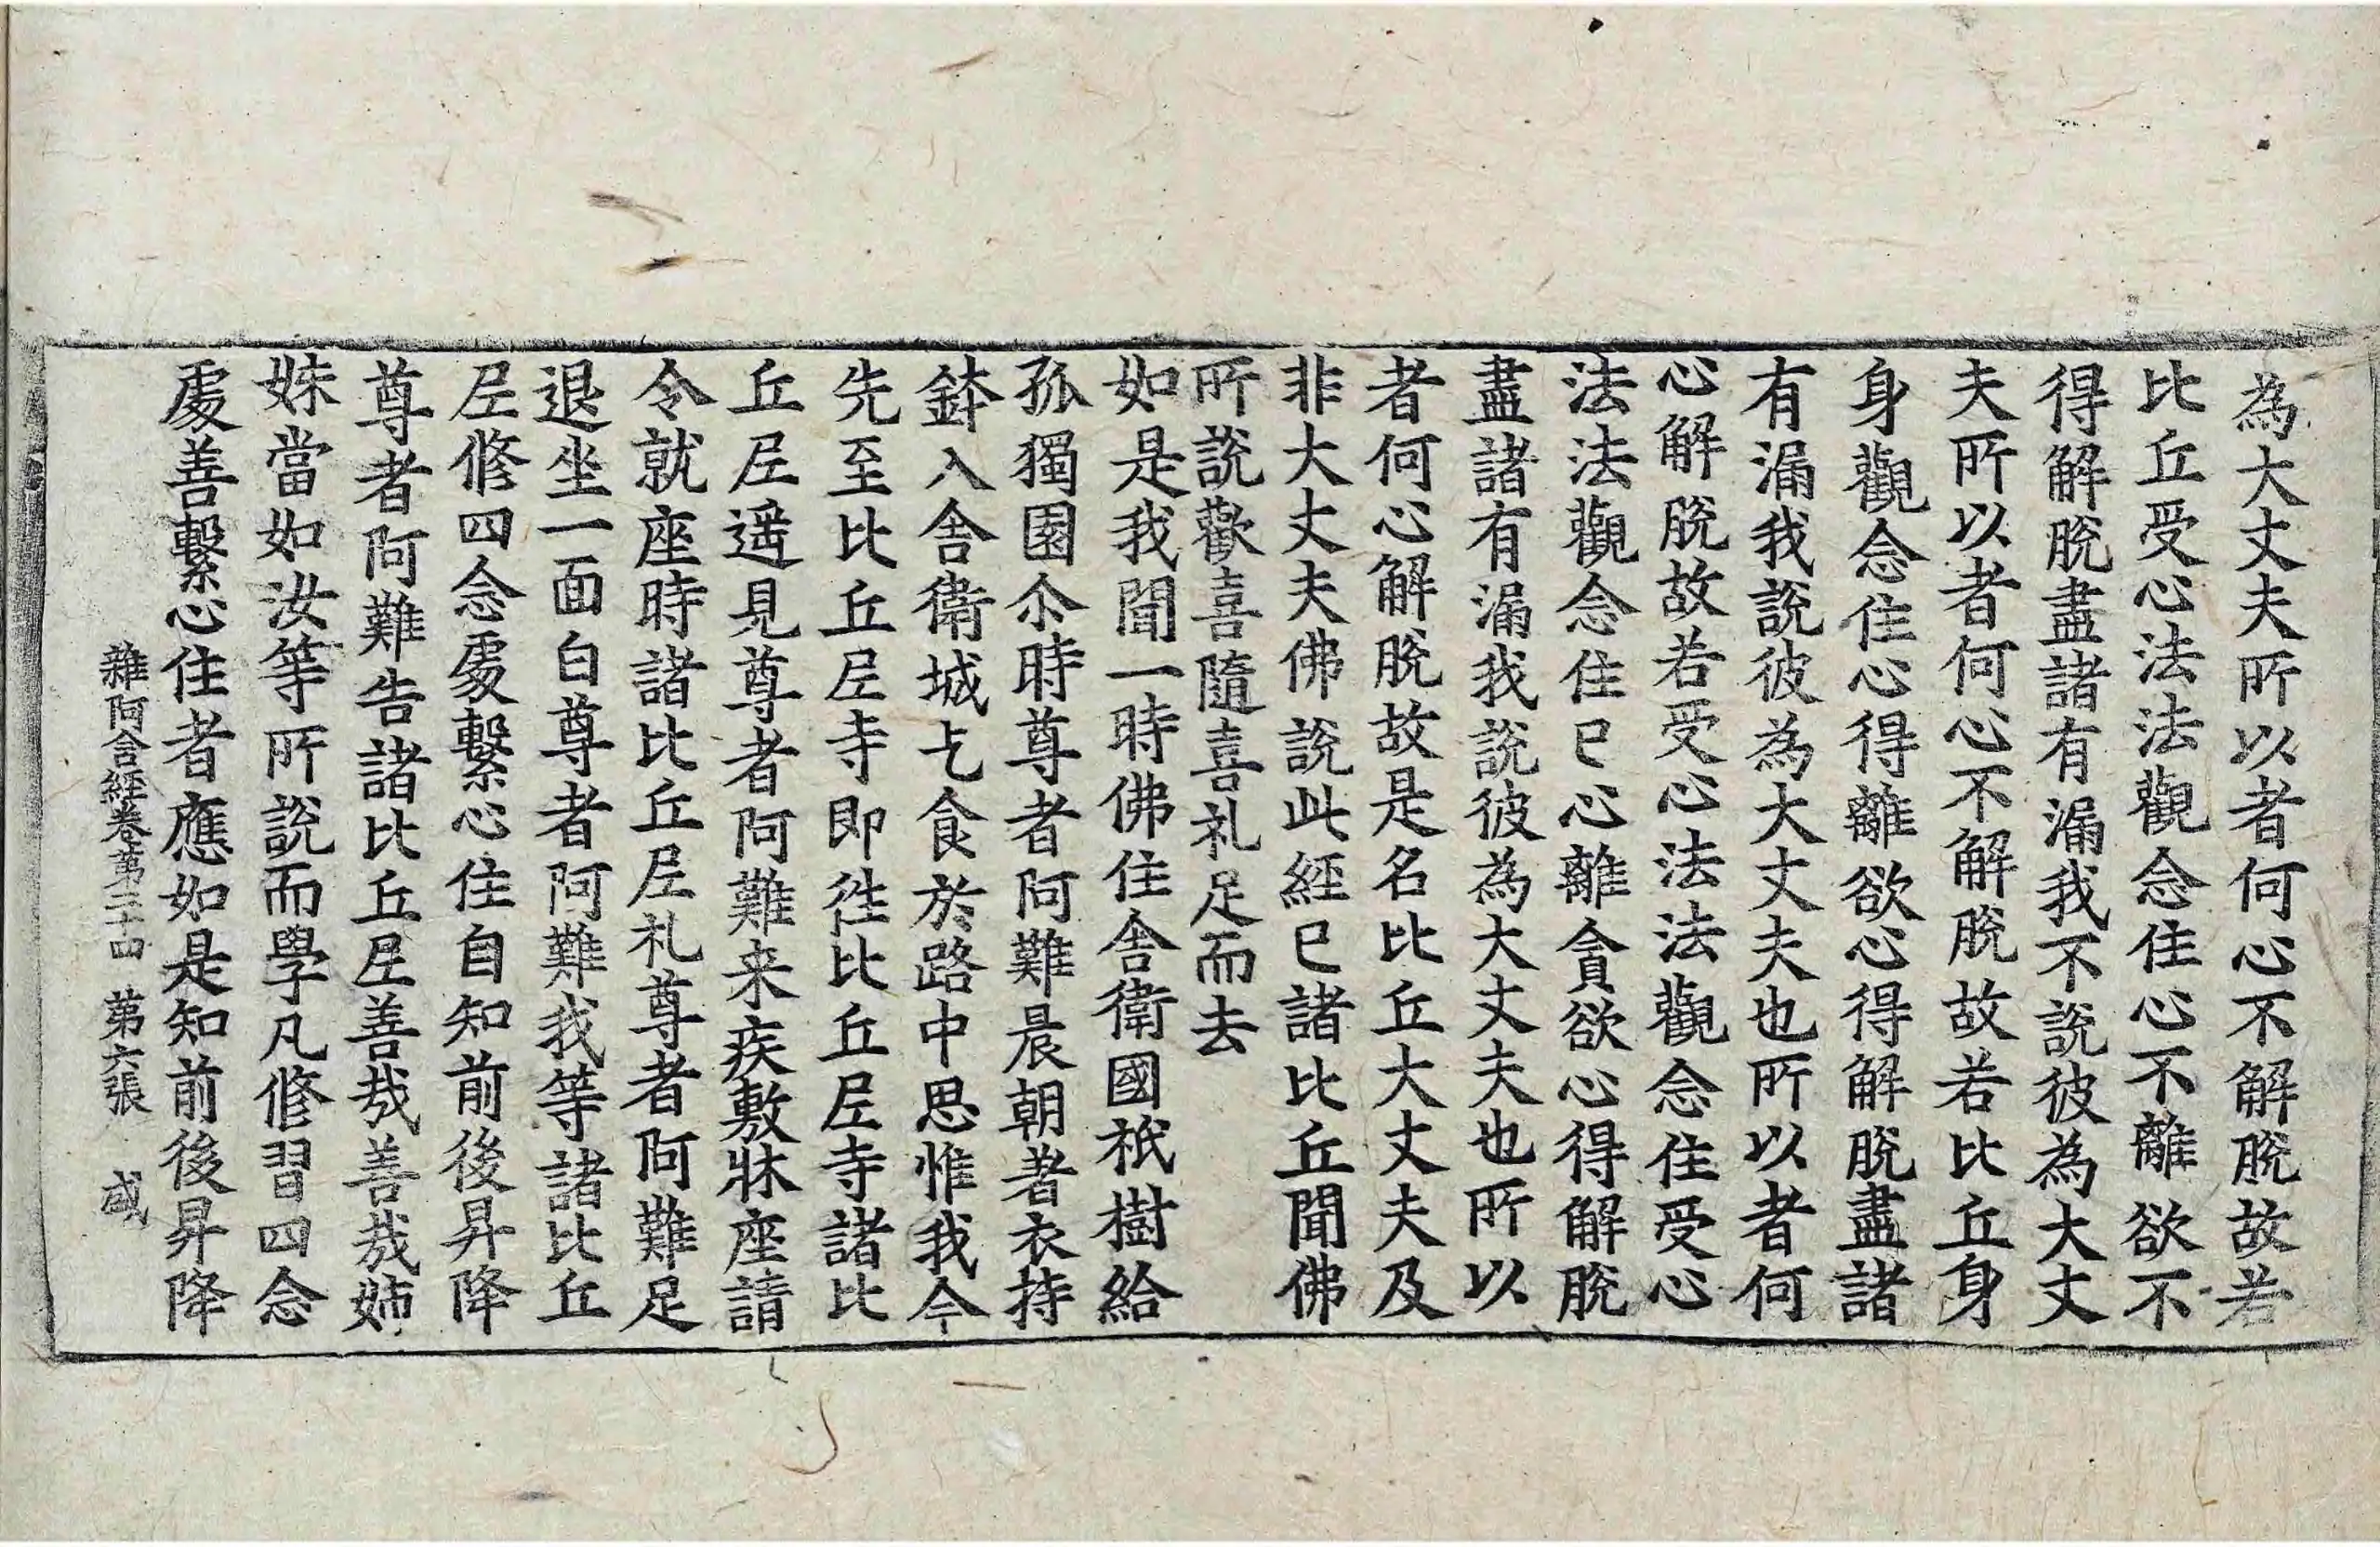 為大丈夫所以者何心不解脫故若
比丘受心法法觀念住心不離欲不
得解脫盡諸有漏我不說彼為大丈
夫所以者何心不解脫故若比丘身
身觀念住心得離欲心得解脫盡諸
有漏我說彼為大丈夫也所以者何
心解脫故若受心法法觀念住受心
法法觀念住已心離貪欲心得解脫
盡諸有漏我說彼為大丈夫也所以
者何心解脫故是名比丘大丈夫及
非大丈夫佛說此經已諸比丘聞佛
所說歡喜隨喜礼足而去
如是我聞一時佛住舍衛國祇樹給
孤獨園尒時尊者阿難晨朝著衣持
鉢入舍衛城乞食於路中思惟我今
先至比丘尼寺即往比丘尼寺諸比
丘尼遥見尊者阿難来疾敷牀座請
令就座時諸比丘尼礼尊者阿難足
退坐一面白尊者阿難我等諸比丘
尼修四念處繫心住自知前後昇降
尊者阿難告諸比丘尼善哉善哉姉
妹當如汝等所說而學凡修習四念
處善繫心住者應如是知前後昇降
雜阿含經卷第二十四 第六張 咸